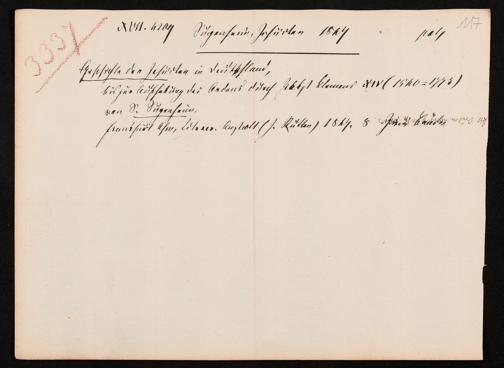 3337
XVII. 4209 Sugenheim, Jesuiten 1847 117
Geschichte der Jesuiten in Deutschland,
bis zur Aufhebung des Ordens durch Pabst Clemens XIV (1540=1773)
von S. Sugenheim.
Frankfurt a/m, Literar. Anstalt (J. Rütten) 1847. 8